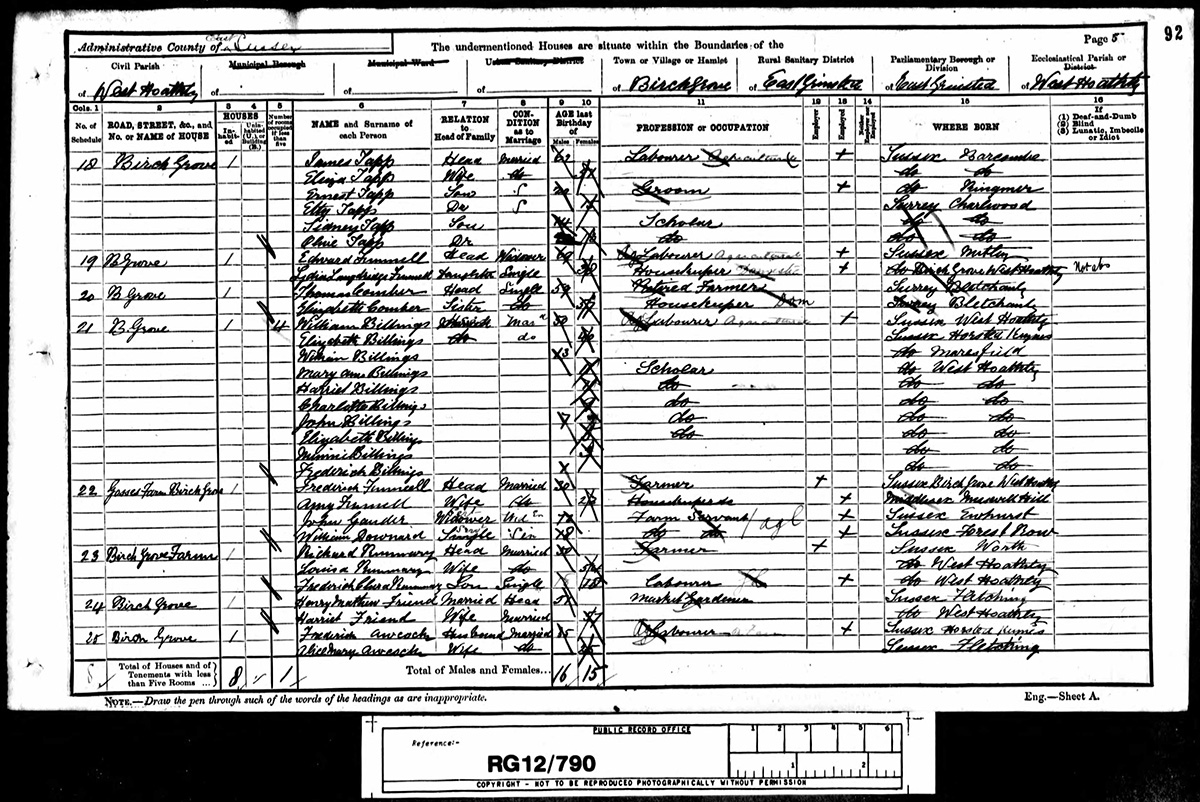 Administrative County of East Sussex
The undermentioned Houses are situate within the Boundaries of the
Page 5
92
Civil Parish
of West Hoathly
Municipal Borough
of
Municipal Ward
of
Urban Sanitary District
of
Town or Village or Hamlet
of Birchgrove
Rural Sanitary District
of East Grinsted
Parliamentary Borough or Division
of East Grinsted
Ecclesiastical Parish or District
of West Hoathly
Cols. 1 2 3 4 5 6 7 8 9 10 11 12 13 14 15 16
No. of Schedule
ROAD, STREET, &c., and No. or NAME of HOUSE
HOUSES
In-habit-ed
Unin-habited (U.) or Building (B.)
Number of rooms occupied if less than five
NAME and Surname of each Person
RELATION to Head of Family
CON-DITION as to Marriage
AGE last Birthday of
Males Females
PROFESSION or OCCUPATION
Employer
Employed
Neither Employer nor Employed
WHERE BORN
If
(1) Deaf-and-Dumb
(2) Blind
(3) Lunatic, Imbecile or Idiot
18 Birch Grove 1 James Tapp Head Married 62 Labourer Agricultural + Sussex Barcombe
Eliza Tapp Wife do do do
Ernest Tapp Son S 20 Groom + do Ringmer
Etty Tapp Dr S Surrey Charlwood
Sidney Tapp Son Scholar do do
Olive Tapp Dr do do do
19 B Grove 1 Edward Funnell Head Widower 69 Ag Labourer Agricultural + Sussex
Funnell Daughter Single Housekeeper + do Birch Grove West Hoathly
20 B Grove 1 Thomas Comber Head Single 59 Retired Farmer Surrey Bletchingly
Elizabeth Comber Sister do Housekeeper Dom Surrey Bletchingly
21 B. Grove 1 4 William Billings Mar 50 Ag Labourer Agricultural + Sussex West Hoathly
Elizabeth Billings do do Sussex Horsted Keynes
William Billings 13 do Maresfield
Mary Ann Billings Scholar do West Hoathly
Harriet Billings do do do
Charlotte Billings do do do
John Billings 7 do do do
Elizabeth Billings do do do
Minnie Billings do do
Frederick Billings do do
22 Gosses Farm Birch Grove 1 Frederick Funnell Head Married 30 Farmer + Sussex Birch Grove West Hoathly
Amy Funnell Wife do Housekeeper do + Middlesex Muswell Hill
John Gander Widower Farm Servant / agl + Sussex Ewhurst
William Downard Single Sin 18 do do + Sussex Forest Row
23 Birch Grove Farm 1 Richard Rummary Head Married Farmer + Sussex Worth
Louisa Rummary Wife do do West Hoathly
Frederick Rummary Son Single 18 Labourer + do West Hoathly
24 Birch Grove 1 Henry Mathew Friend Married Head Market Gardener Sussex Fletching
Harriet Friend Wife Married do West Hoathly
25 Birch Grove 1 Frederick Awcock Husband Married Ag Labourer + Sussex Horsted Keynes
Alice Mary Awcock Wife do Sussex Fletching
8 Total of Houses and of Tenements with less than Five Rooms ... 8 1 Total of Males and Females... 16 15
NOTE.—Draw the pen through such of the words of the headings as are inappropriate.
Eng.—Sheet A.
PUBLIC RECORD OFFICE
1 2 3 4 5 6
Reference:-
RG12/790
1 2
COPYRIGHT - NOT TO BE REPRODUCED PHOTOGRAPHICALLY WITHOUT PERMISSION